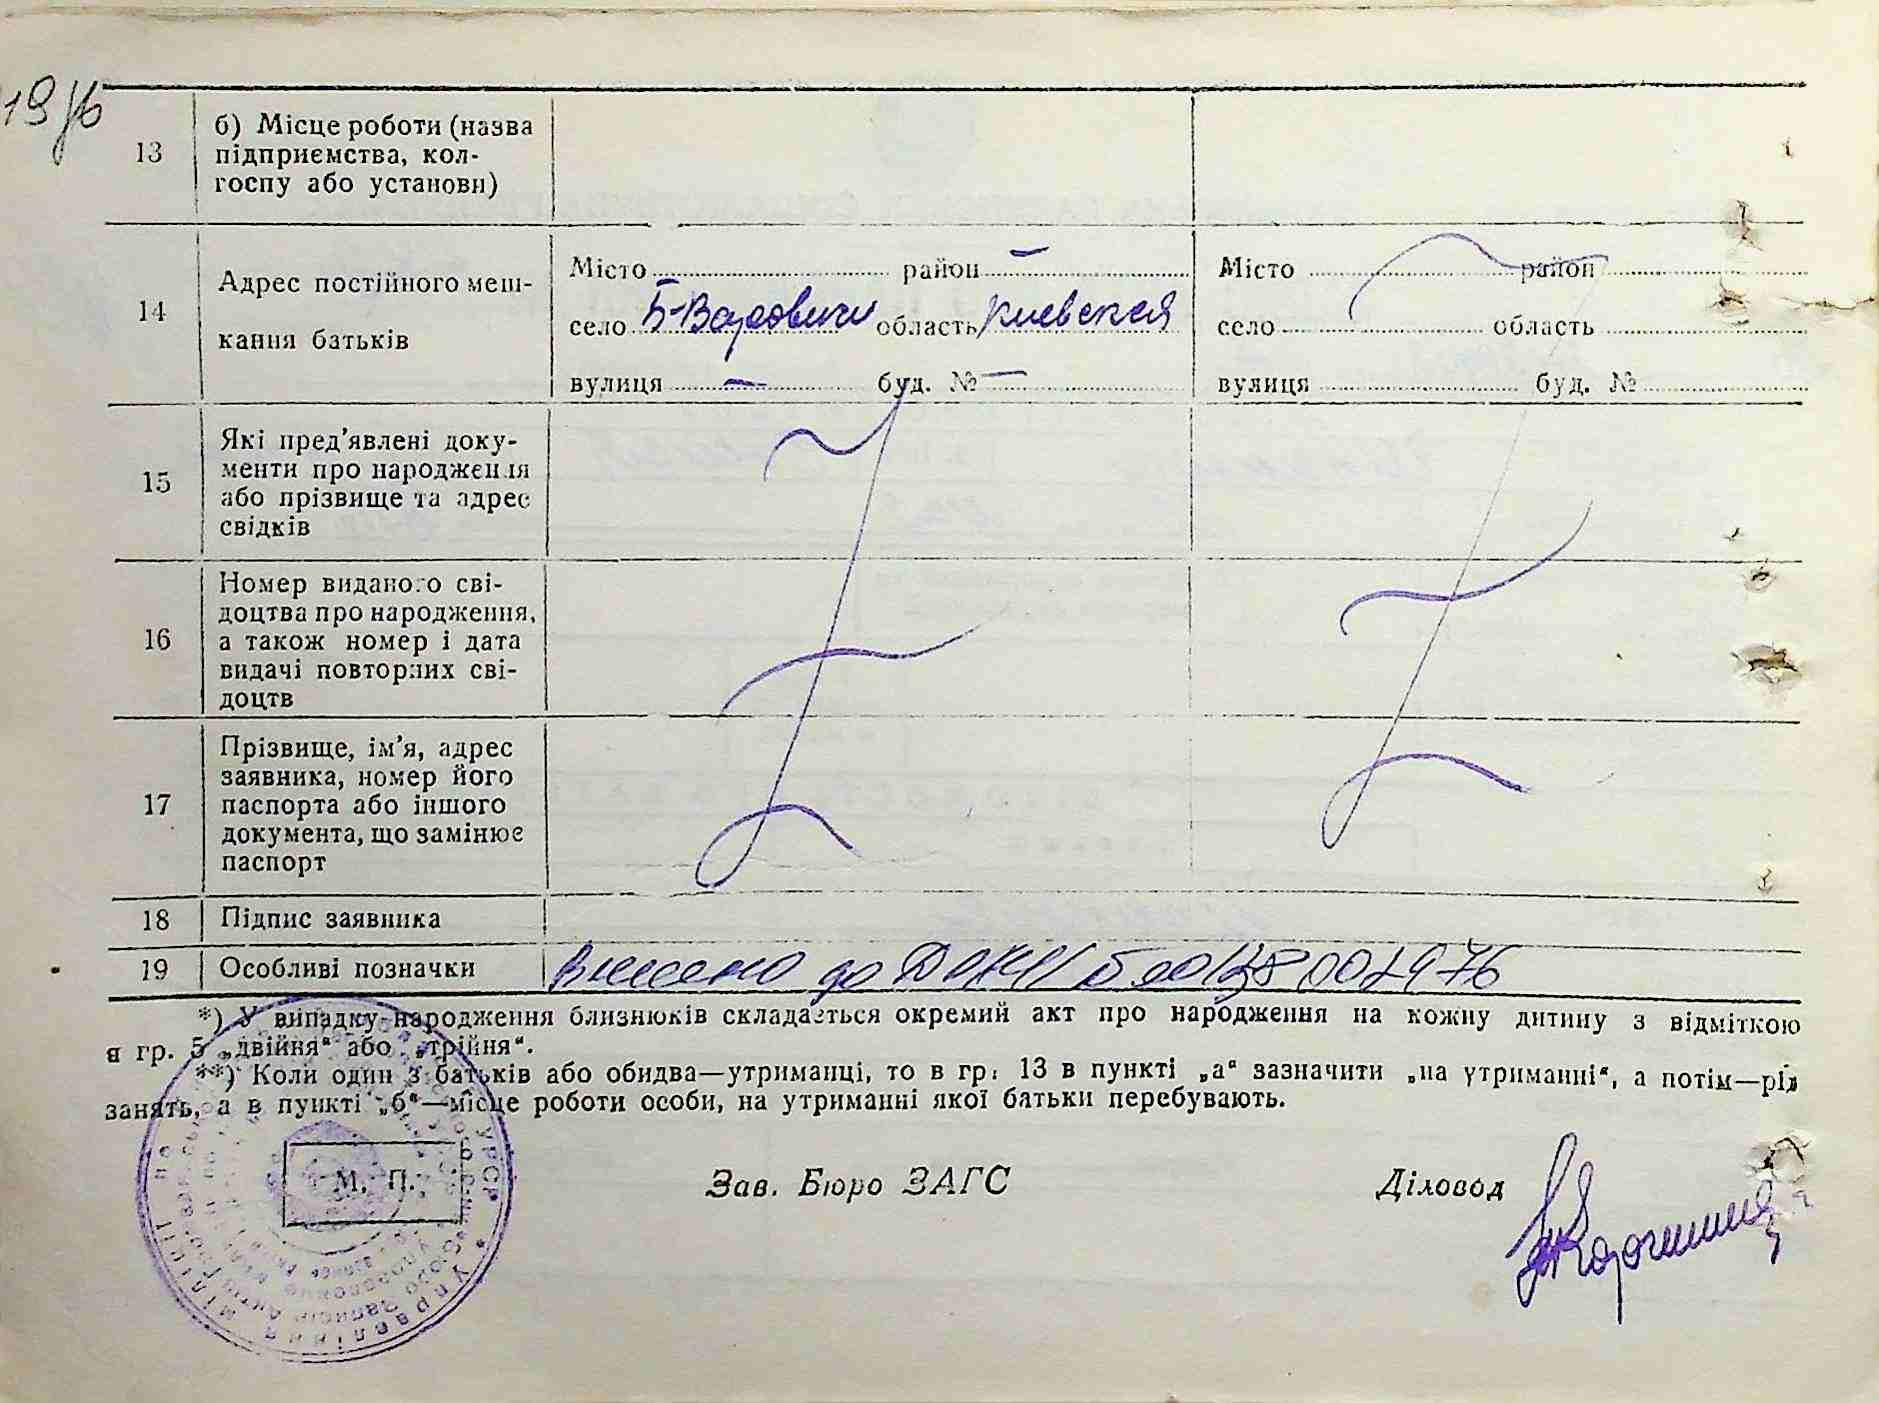 13
б) Місце роботи (назва
підприємства, кол-
госпу або установи)
14
Адрес постійного меш-
кання батьків
Місто район –
село Б-Варовичи область Киевская
вулиця – буд. № –
Місто район
село область
вулиця буд. №
15
Які пред'явлені доку-
менти про народження
або прізвище та адрес
свідків
16
Номер виданого сві-
доцтва про народження,
а також номер і дата
видачі повторних сві-
доцтв
17
Прізвище, ім'я, адрес
заявника, номер його
паспорта або іншого
документа, що замінює
паспорт
18 Підпис заявника
19 Особливі позначки
Внесено до
*) У випадку народження близнюків складається окремий акт про народження на кожну дитину з відміткою
я гр. 5 „двійня“ або „трійня“.
**) Коли один з батьків або обидва—утриманці, то в гр. 13 в пункті „а“ зазначити „на утриманні“, а потім—рід
занять, а в пункті „б“—місце роботи особи, на утриманні якої батьки перебувають.
М. П.
Зав. Бюро ЗАГС
Діловод